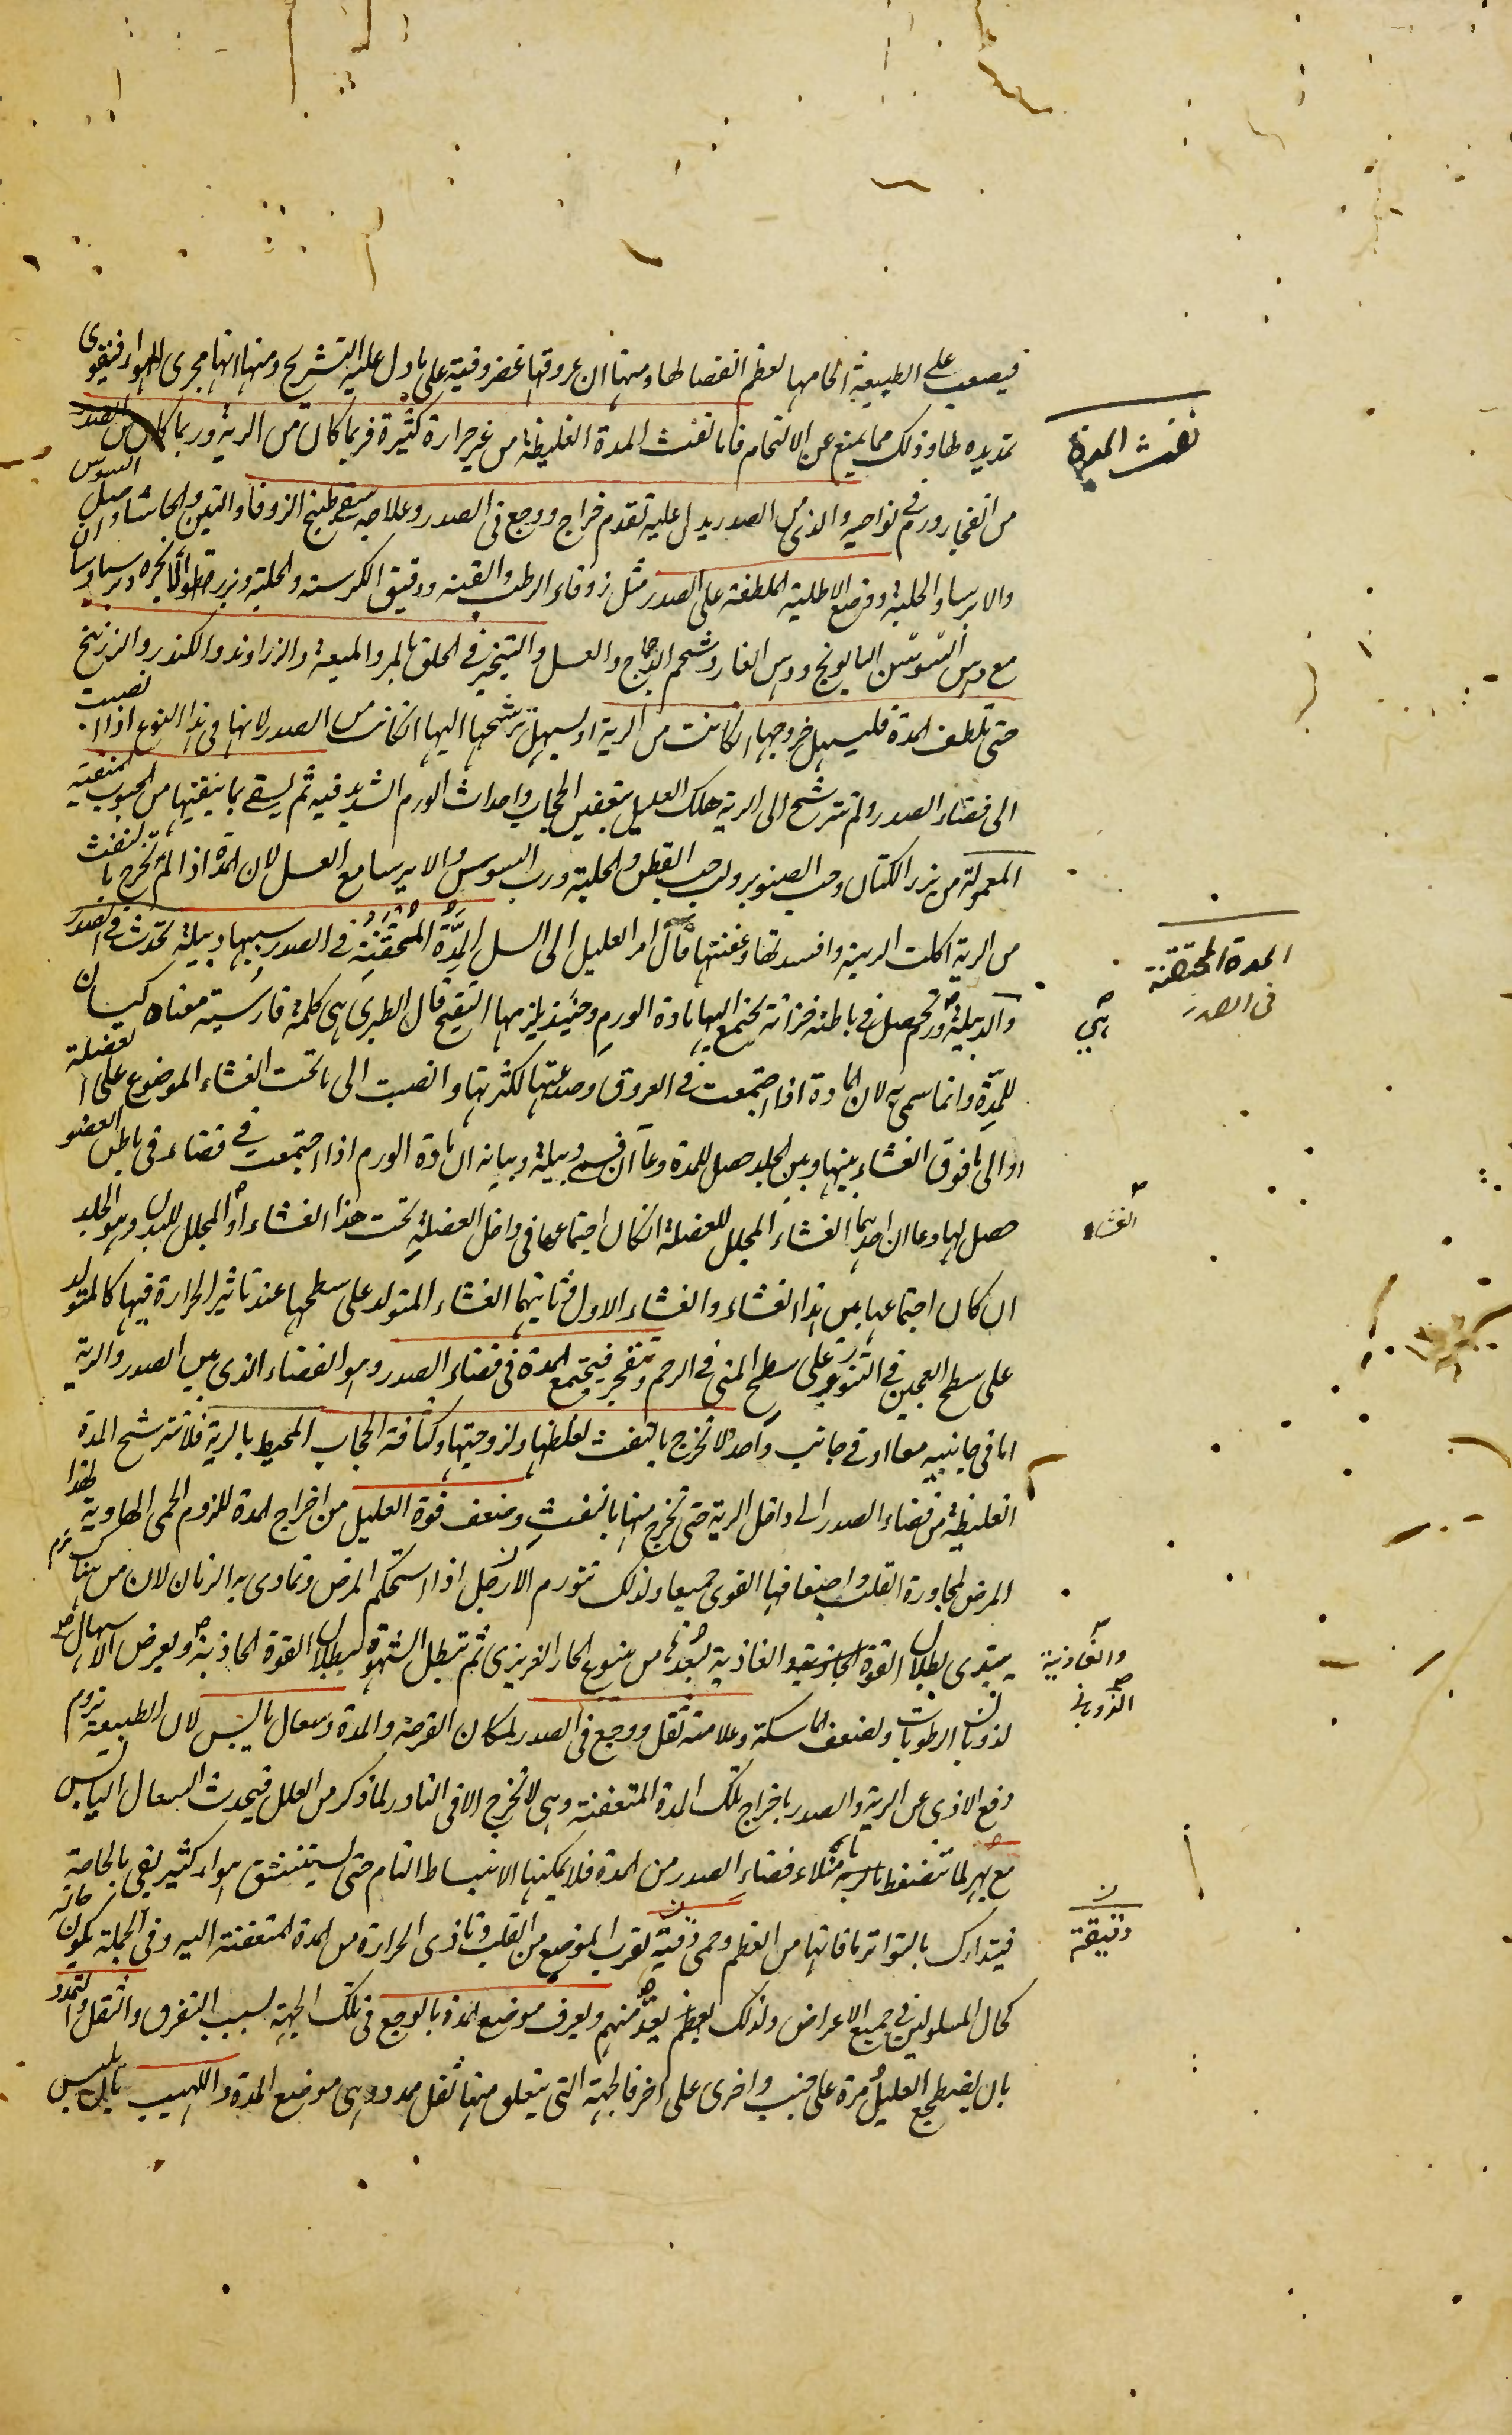 فيصعب على الطبيعة الحامها لعظم انفصالها ومنها ان عروقها غضروفية على ما دل عليه التشريح ومنها انها مجرى الهواء فيقوى
نفث المدة
تمديده لها وذلك مما يمنع عن الالتحام فاما نفث المدة الغليظة من غير حرارة كثيرة فربما كان من الرية وربما كان من الصدر
من انفجار ورم فى نواحيه والذى من الصدر يدل عليه تقدم خراج ووجع فى الصدر وعلاجه سقى طبيخ الزوفا والتين والحاشا واصل السوس
والايرسا والحلبة ووضع الاطلية الملطفة على الصدر مثل زوفاء الرطب والقنة ودقيق الكرسنة والحلبة وبزر
مع دهن السوسن البابونج ودهن الغار وشحم الدجاج والعسل والتبخير فى الحلق بالمر والميعة والزراوند والكندر والزرنيخ
حتى تلطف المدة فليسهل خروجها ان كانت من الرية او ليسهل ترشحها اليها ان كانت من الصدر لانها فى هذا النوع اذا انصبت
الى فضاء الصدر ولم تترشح الى الرية هلك العليل بتعفين الحجاب واحداث الورم الشديد فيه ثم يسقى ما ينقيها من الحبوب المنقية
المعمولة من بزر الكتان وحب الصنوبر ولب حب القطن والحلبة ورب السوس والايرسا مع العسل لان المدة اذا لم تخرج بالنفث
من الرية اكلت الرية وافسدتها وعفنتها فآل امر العليل الى السل المِدّة المحتقنة فى الصدر سببها دبيلة تحدث فى الصدر
المدة المحتقنة
فى الصدر
والدبيلة ورم تحصل فى باطنه خزانة تجتمع اليها مادة الورم وحينئذ يلزمها التقيح قال الطبرى هى كلمة فارسية معناه كيسان
هى
للمِدّة وانما سمى به لان المادة اذا اجتمعت فى العروق وصدعتها لكثرتها وانصبت الى ما تحت الغشاء الموضوع على العضلة
او الى ما فوق الغشاء بينها وبين الجلد حصل للمدة وعاآن فهى دبيلة وبيانه ان مادة الورم اذا اجتمعت فى فضاء فى باطن العضو
حصل لها وعاان احدهما الغشاء المجلل للعضلة ان كان اجتماعها فى داخل العضلة تحت هذا الغشاء او المجلل للبدن وهو الجلد
الغشاء
ان كان اجتماعها بين هذا الغشاء والغشاء الاول وثانيهما الغشاء المتولد على سطحها عند تاثير الحرارة فيها كالمتولد
على سطح العجين فى التنور وعلى سطح المنى فى الرحم وتنفجر فيجتمع المدة فى فضاء الصدر وهو الفضاء الذى بين الصدر والرية
اما فى جانبيه معا او فى جانب واحد لا تخرج بالنفث لغلظها ولزوجتها وكثافة الحجاب المحيط بالرية فلا تترشح المدة
الغليظة من فضاء الصدر الى داخل الرية حتى تخرج منها بالنفث وضعف قوة العليل من اخراج المدة للزوم الحمى الهاوية لهذا
المرض لمجاورة القلب واضعافها القوى جميعا ولذلك تتورم الارجل اذا استحكم المرض وتمادى به الزمان لان من هناك
يبتدى بطلان القوة الغاذية لبُعدها من ينبوع الحار الغريزى ثم تبطل الشهوة لبطلان القوة الجاذبة ويعرض الاسهال
والغاذية
الذوبانى
لذوبان الرطوبات ولضعف الماسكة وعلامته ثقل ووجع فى الصدر لمكان القرحة والمدة وسعال يابس لان الطبيعة تروم
دفع الاذى عن الرية والصدر باخراج تلك المدة المتعفنة وهى لا تخرج الا فى النادر لما ذكر من العلل فيحدث السعال اليابس
مع بهر لما تنضغط الرية بامتلاء فضاء الصدر من المدة فلا يمكنها الانبساط التام حتى يستنشق هواء كثير يفى بالحاجة
فيتدارك بالتواتر ما فاتها من العظم وحمى دقية لقرب الموضع من القلب وتاذى الحرارة من المدة المتعفنة اليه وفى الجملة يكون حاله
ن
دقيقة
كحال المسلولين فى جميع الاعراض ولذلك يعدّ منهم ويعرف موضع المدة بالوجع فى تلك الجهة لسبب التفرق والثقل والتمدد
بان يضطجع العليل مرة على جنب واخرى على اخر فالجهة التى يتعلق منها ثقل ممدد هى موضع المدة واللهيب